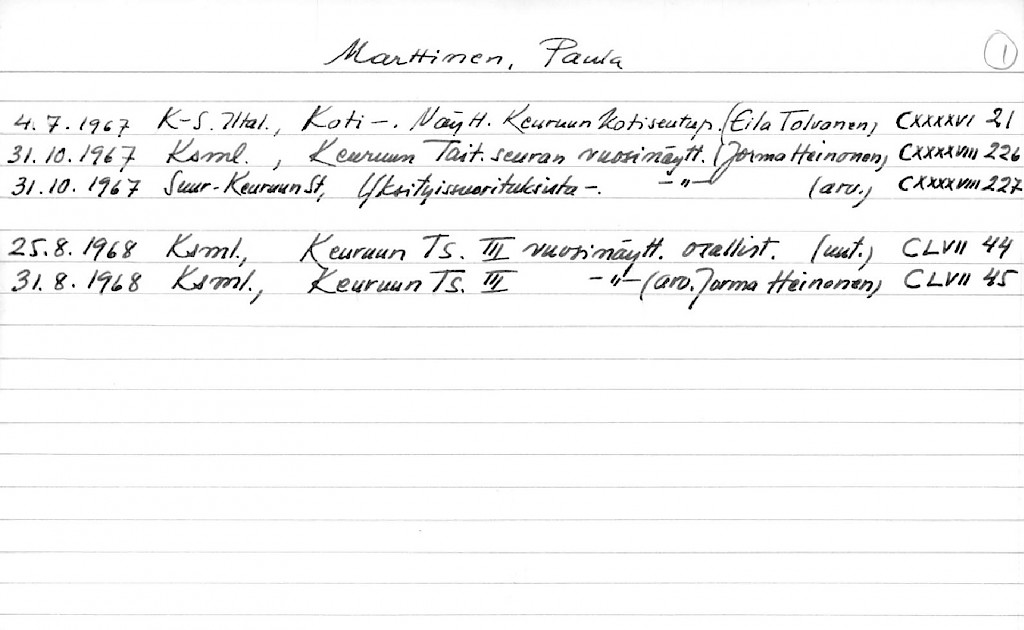 Marttinen, Paula 1
4.7.1967 K-S. Iltal., Koti-. Näytt. Keuruun kotiseutup. (Eila Tolvanen) CXXXXVI 21
31.10.1967 Ksml., Keuruun Tait.seuran vuosinäytt. (Jorma Heinonen) CXXXXVIII 226
31.10.1967 Suur-Keuruun St, Yksityissuorituksista -. -"- (arv.) CXXXXVIII 227
25.8.1968 Ksml., Keuruun Ts. III vuosinäytt. osallist. (uut.) CLVII 44
31.8.1968 Ksml., Keuruun Ts. III -"- (arv. Jorma Heinonen) CLVII 45